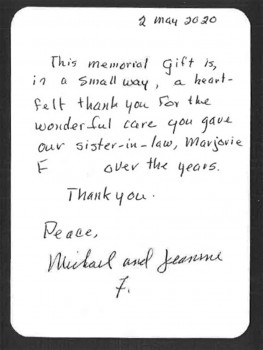 2 May 2020
This memorial Gift is,
in a small way, a heart-
felt thank you for the
wonderful care you gave
our sister-in-law, Marjorie
E over the years.
Thank you.
Peace,
Michael and Jeanne
F.